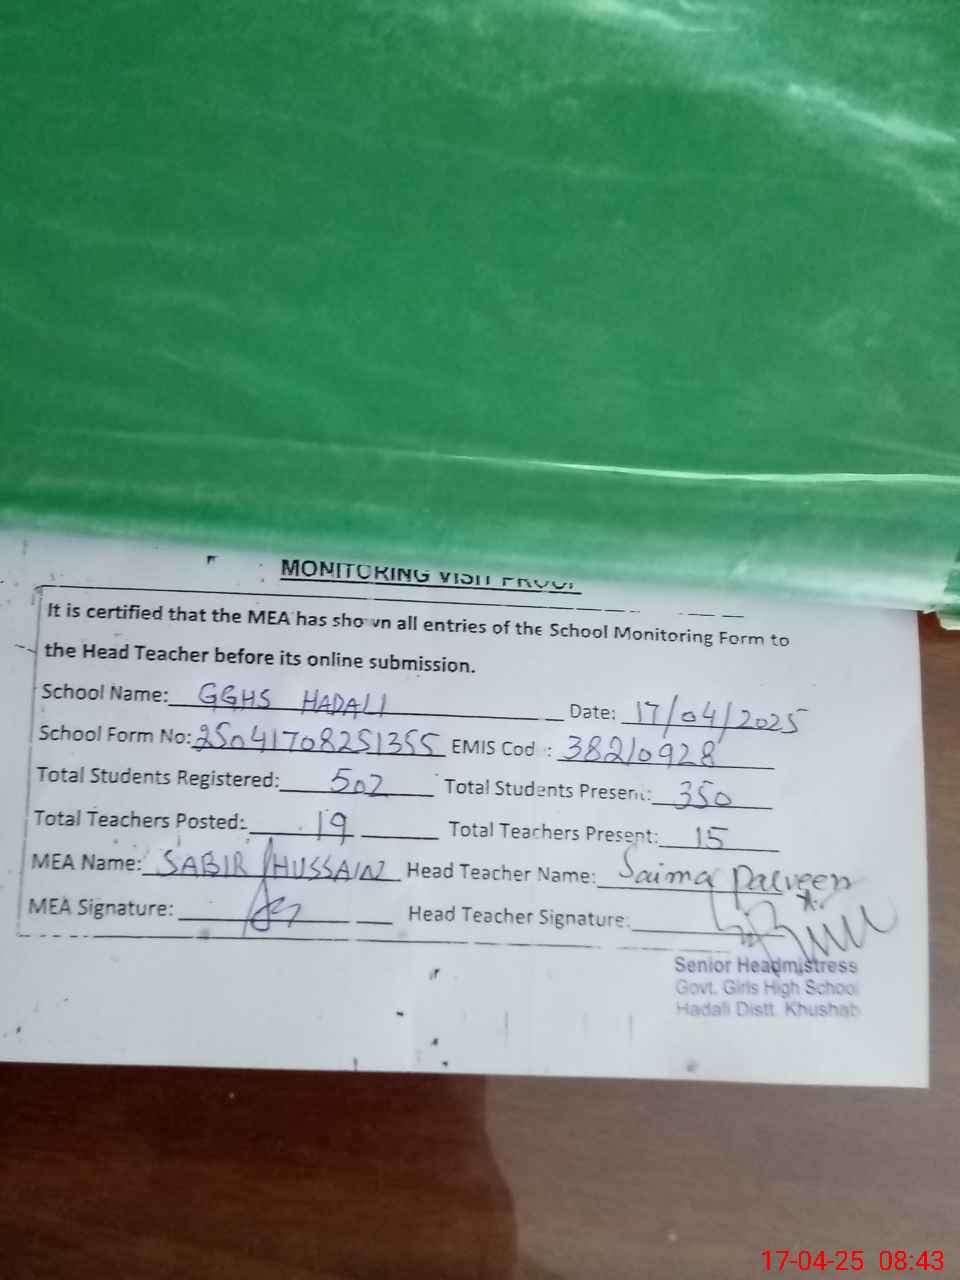 MONITORING VISIT PROOF
It is certified that the MEA has shown all entries of the School Monitoring Form to
the Head Teacher before its online submission.
School Name: GGHS HADALI Date: 17/04/2025
School Form No: 25041708251355 EMIS Cod : 38210928
Total Students Registered: 502 Total Students Present: 350
Total Teachers Posted: 19 Total Teachers Present: 15
MEA Name: SABIR HUSSAIN Head Teacher Name: Saima Parveen
MEA Signature: Head Teacher Signature:
Senior Headmistress
Govt. Girls High School
Hadali Distt. Khushab
17-04-25 08:43